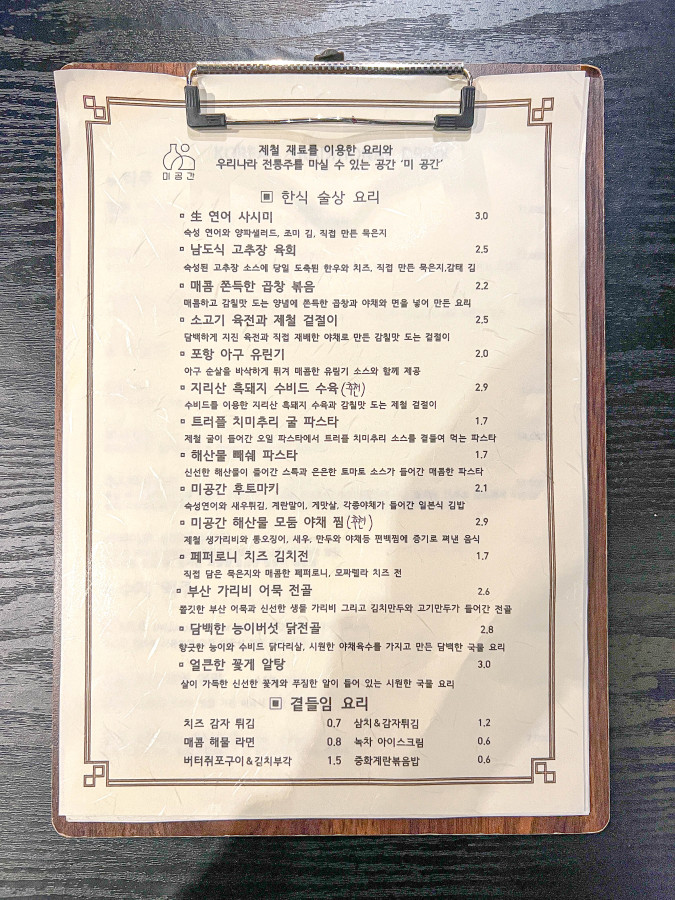 미공간
제철 재료를 이용한 요리와
우리나라 전통주를 마실 수 있는 공간 '미 공간'
▣ 한식 술상 요리
生 연어 사시미 3.0
숙성 연어와 양파샐러드, 조미 김, 직접 만든 묵은지
남도식 고추장 육회 2.5
숙성된 고추장 소스에 당일 도축된 한우와 치즈, 직접 만든 묵은지,감태 김
매콤 쫀득한 곱창 볶음 2.2
매콤하고 감칠맛 도는 양념에 쫀득한 곱창과 야채와 면을 넣어 만든 요리
소고기 육전과 제철 겉절이 2.5
담백하게 지진 육전과 직접 재배한 야채로 만든 감칠맛 도는 겉절이
포항 아구 유린기 2.0
아구 순살을 바삭하게 튀겨 매콤한 유림기 소스와 함께 제공
지리산 흑돼지 수비드 수육(추천) 2.9
수비드를 이용한 지리산 흑돼지 수육과 감칠맛 도는 제철 겉절이
트러플 치미추리 굴 파스타 1.7
제철 굴이 들어간 오일 파스타에서 트러플 치미추리 소스를 곁들여 먹는 파스타
해산물 빼쉐 파스타 1.7
신선한 해산물이 들어간 스톡과 은은한 토마토 소스가 들어간 매콤한 파스타
미공간 후토마키 2.1
숙성연어와 새우튀김, 계란말이, 게맛살, 각종야채가 들어간 일본식 김밥
미공간 해산물 모둠 야채 찜(추천) 2.9
제철 생가리비와 통오징어, 새우, 만두와 야채등 편백찜에 증기로 쪄낸 음식
페퍼로니 치즈 김치전 1.7
직접 담은 묵은지와 매콤한 페퍼로니, 모짜렐라 치즈 전
부산 가리비 어묵 전골 2.6
쫄깃한 부산 어묵과 신선한 생물 가리비 그리고 김치만두와 고기만두가 들어간 전골
담백한 능이버섯 닭전골 2.8
향긋한 능이와 수비드 닭다리살, 시원한 야채육수를 가지고 만든 담백한 국물 요리
얼큰한 꽃게 알탕 3.0
살이 가득한 신선한 꽃게와 푸짐한 알이 들어 있는 시원한 국물 요리
▣ 곁들임 요리
치즈 감자 튀김 0.7 삼치&감자튀김 1.2
매콤 해물 라면 0.8 녹차 아이스크림 0.6
버터쥐포구이&김치부각 1.5 중화계란볶음밥 0.6